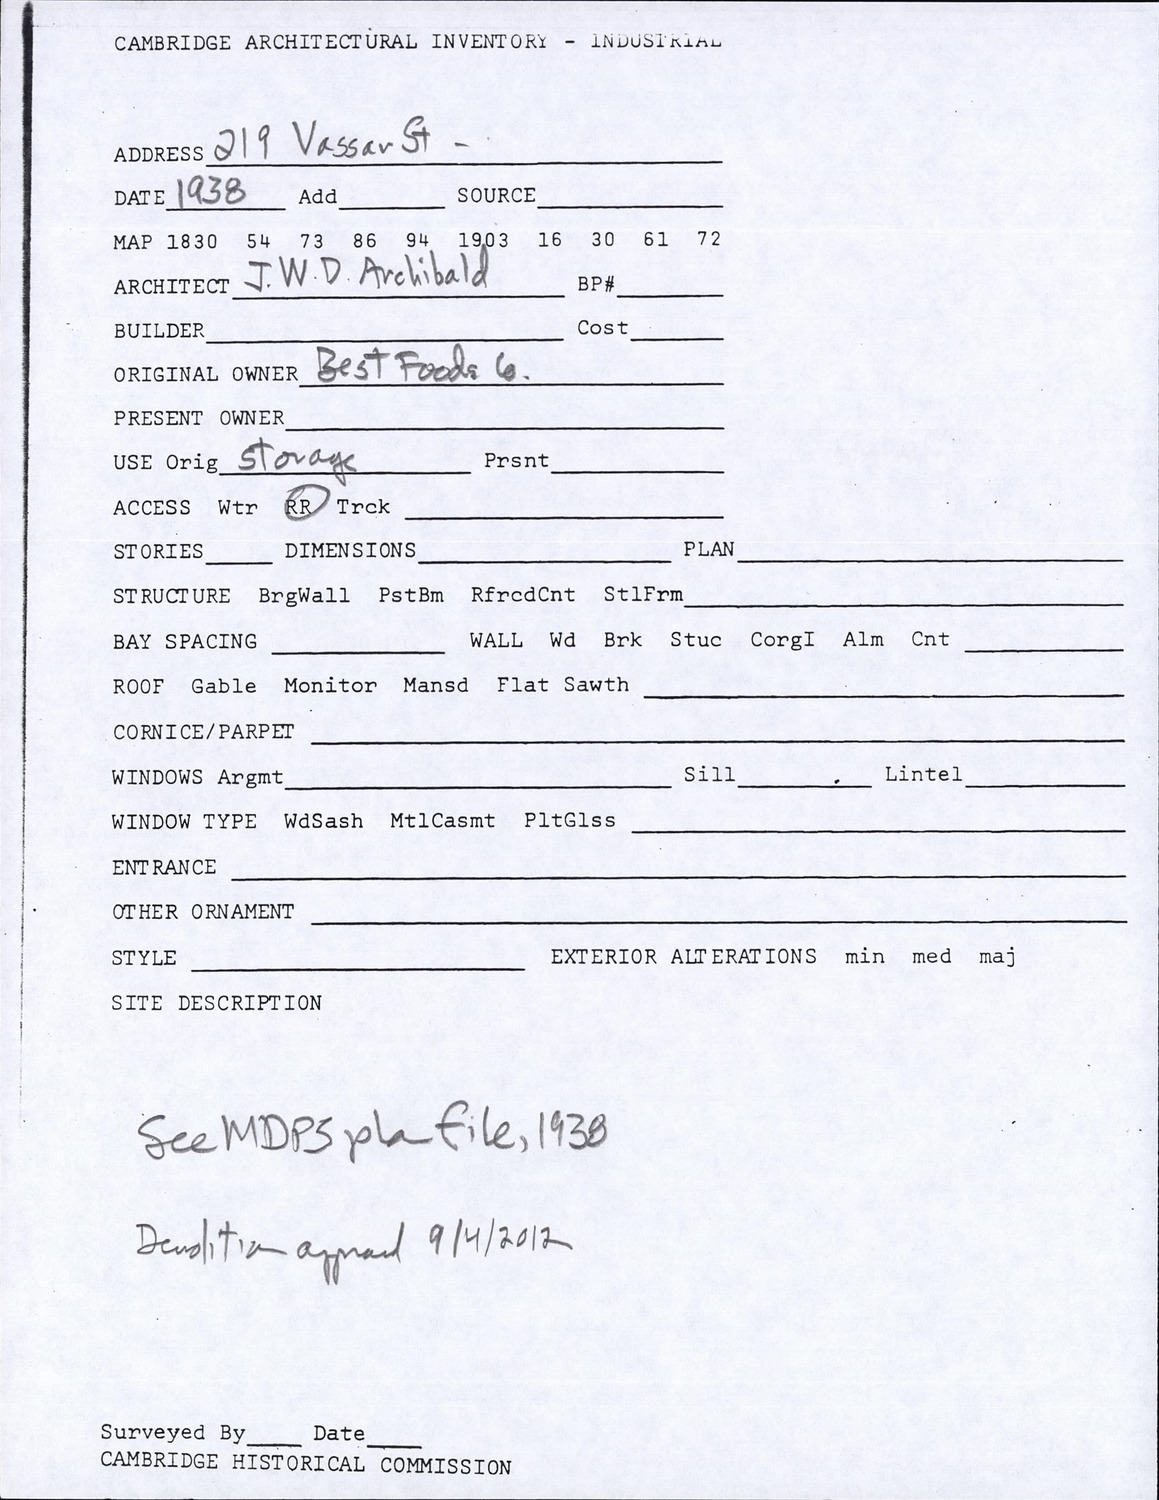 CAMBRIDGE ARCHITECTURAL INVENTORY - INDUSTRIAL
ADDRESS 219 Vassar St -
DATE 1938 Add SOURCE
MAP 1830 54 73 86 94 1903 16 30 61 72
ARCHITECT J.W.D. Archibald BP#
BUILDER Cost
ORIGINAL OWNER Best Foods Co.
PRESENT OWNER
USE Orig storage Prsnt
ACCESS Wtr RR Trck
STORIES DIMENSIONS PLAN
STRUCTURE BrgWall PstBm RfrcdCnt StlFrm
BAY SPACING WALL Wd Brk Stuc CorgI Alm Cnt
ROOF Gable Monitor Mansd Flat Sawth
CORNICE/PARPET
WINDOWS Argmt Sill Lintel
WINDOW TYPE WdSash MtlCasmt PltGlss
ENTRANCE
OTHER ORNAMENT
STYLE EXTERIOR ALTERATIONS min med maj
SITE DESCRIPTION
See MDPS plan file, 1938
Demolition approved 9/4/2012
Surveyed By Date
CAMBRIDGE HISTORICAL COMMISSION